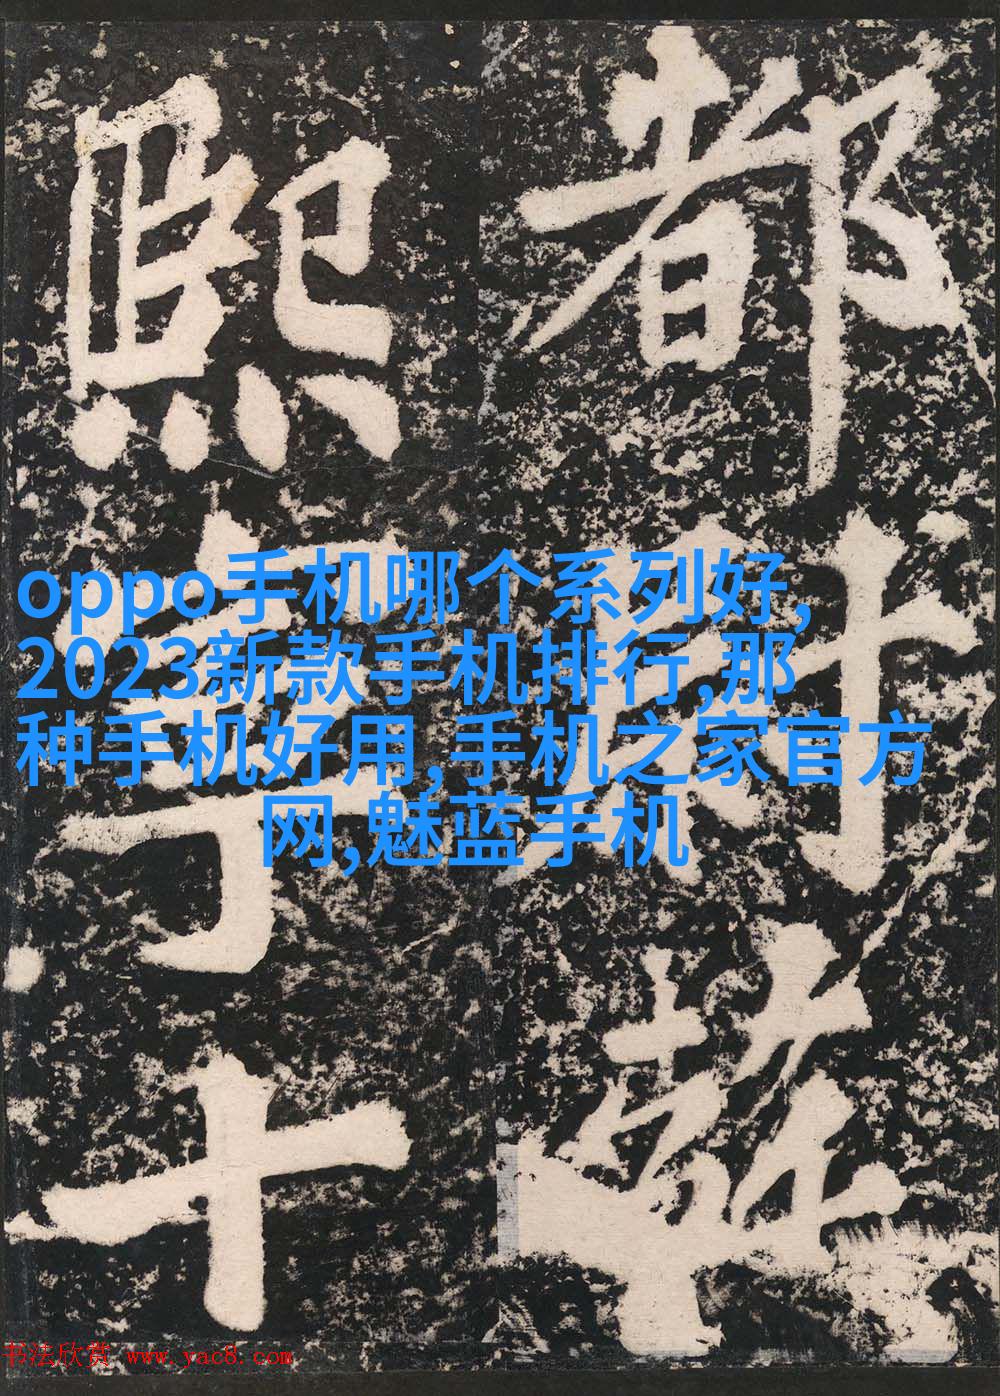 都
熙
oppo手机哪个系列好,
2023新款手机排行,那
种手机好用,手机之家官方
网,魅蓝手机
十
书法欣赏 www.yac8.com